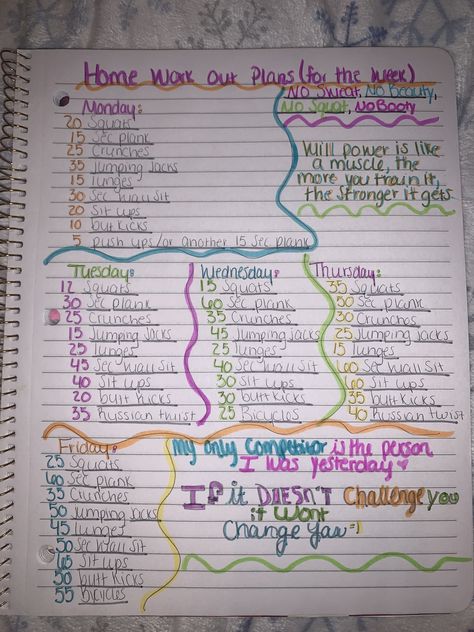 Home Work out Plans (for the week)
No Sweat, No Beauty,
No Squat, No Booty
Monday:
20 Squats
15 Sec plank
25 Crunches
35 Jumping Jacks
15 lunges
30 Sec wall sit
20 Sit ups
10 butt kicks
5 push ups/or another 15 Sec plank
Will power is like
a muscle, the
more you train it,
the stronger it gets
Tuesday:
12 Squats
30 Sec plank
25 Crunches
15 Jumping Jacks
25 lunges
45 Sec wall sit
40 Sit ups
20 butt kicks
35 Russian twist
Wednesday:
15 Squats
60 Sec plank
35 Crunches
45 Jumping Jacks
25 lunges
40 Sec wall sit
30 Sit ups
30 butt kicks
25 Bicycles
Thursday:
35 Squats
50 Sec plank
30 Crunches
25 Jumping Jacks
15 lunges
60 Sec wall sit
60 Sit ups
35 butt kicks
40 Russian twist
Friday:
25 Squats
60 Sec plank
35 Crunches
50 Jumping Jacks
45 lunges
50 Sec wall sit
65 Sit ups
50 butt kicks
55 Bicycles
My only Competitor is the person
I was yesterday
If it DOESN'T Challenge you
it Wont
Change You =)